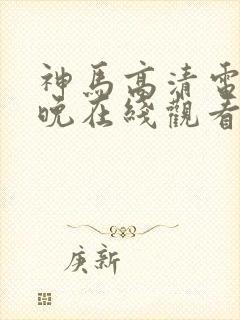 神馬高清電
晚在綫觀看
庚新